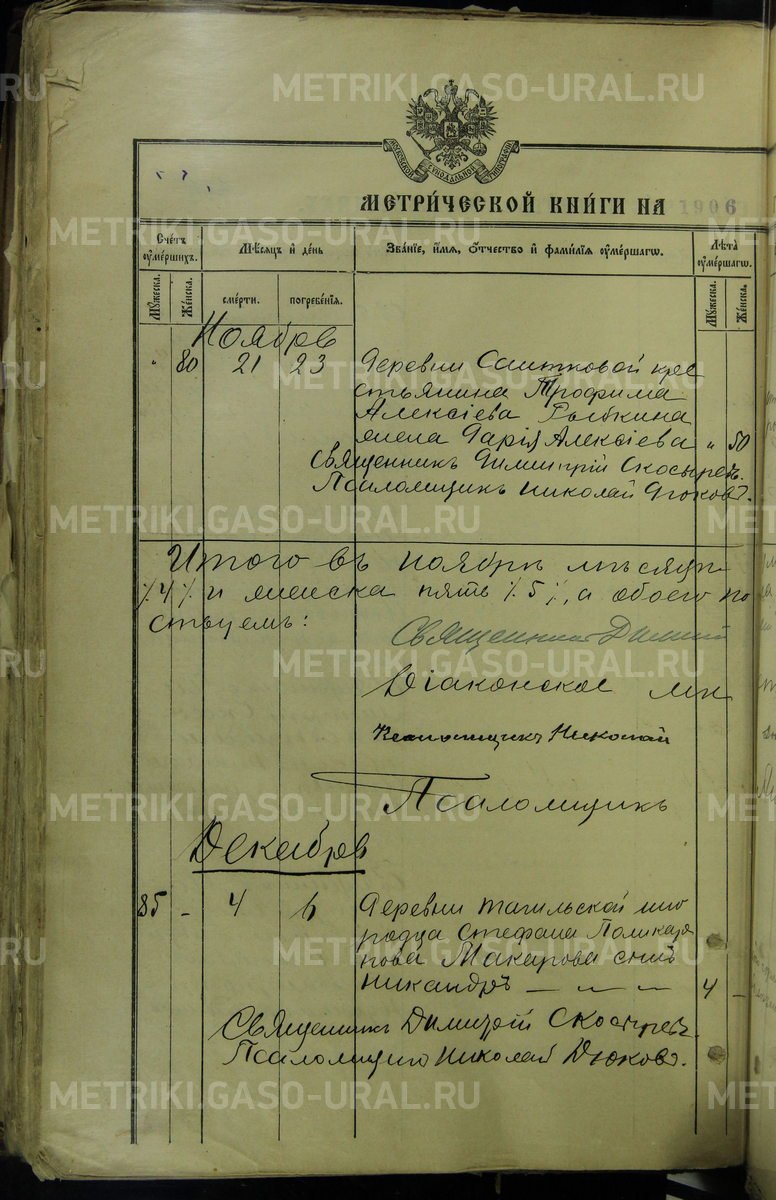 METRIKI.GASO-URAL.RU
МОСКОВСКОЙ СѴНОДАЛЬНОЙ ТИПОГРАФІИ
МЕТРИ́ЧЕСКОЙ КНИ́ГИ НА 1906
Сче́тъ оуме́ршихъ.
Мѣсяцъ и день
Зва́нїе, и́мя, о́тчество и фами́лїя оуме́ршагѡ.
Лѣта̀ оуме́ршагѡ.
Мꙋ́жеска.
Же́нска.
сме́рти.
погребе́нїя.
Мꙋ́жеска.
Же́нска.
Ноябрь
" 80 21 23 Деревни Саитковой кре
стьянина Трофима
Алексіева Рыбкина
жена Дарія Алексіева " 50
Священникъ Димитрій Скосыревъ.
Псаломщикъ Николай Дюковъ.
Итого въ ноябрѣ мѣсяцѣ
/4/ и женска пять /5/, а обоего по
ствуемъ:
Священникъ Димит
Діаконское мѣ
Псаломщикъ Николай
Псаломщикъ
Декабрь
85 - 4 6 Деревни Тагильской ино
родца Стефана Поликар
пова Макарова сынъ
Никандръ — — — — 4 -
Священникъ Димитрій Скосыревъ.
Псаломщикъ Николай Дюковъ.